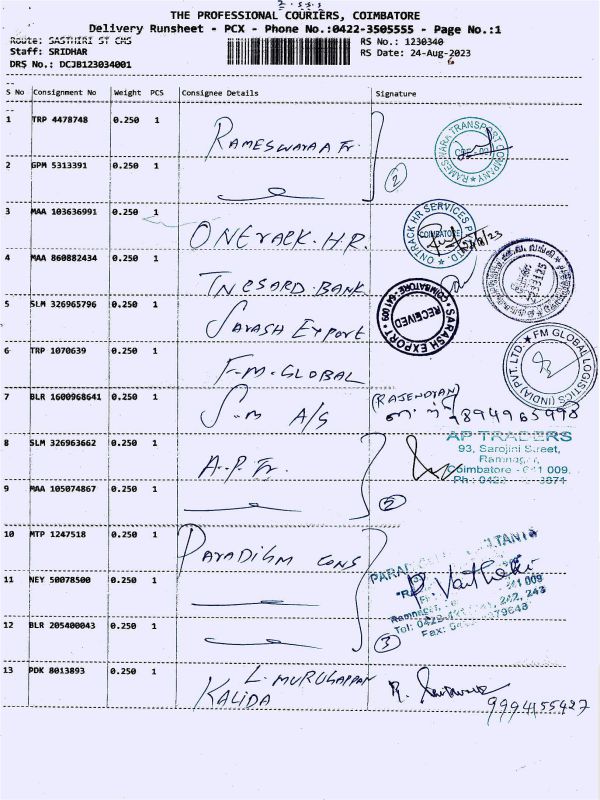 THE PROFESSIONAL COURIERS, COIMBATORE
Delivery Runsheet - PCX - Phone No.:0422-3505555 - Page No.:1
Route: SASTHIRI ST CMS
Staff: SRIDHAR
DRS No.: DCJB123034001
RS No.: 1230340
RS Date: 24-Aug-2023
S No Consignment No Weight PCS Consignee Details Signature
1 TRP 4478748 0.250 1 RAMESWARAA Tr.
RAMESWARA TRANSPORT COMPANY
2 GPM 5313391 0.250 1
2
3 MAA 103636991 0.250 1 ONtrack. HR.
ONTRACK HR SERVICES PVT LTD
COIMBATORE
4 MAA 860882434 0.250 1 TNESARD. BANK
5 SLM 326965796 0.250 1 Sarash Export
SARASH EXPORT COIMBATORE - 641 009
RECEIVED
6 TRP 1070639 0.250 1 F-M. GLOBAL
FM GLOBAL LOGISTICS (INDIA) PVT. LTD.
7 BLR 1600968641 0.250 1 S-M A/S
(RAJENDRAN)
8 SLM 326963662 0.250 1 A.P. Tr.
AP TRADERS
93, Sarojini Street,
Ramnagar,
Coimbatore - 641 009.
Ph : 0422 3871
9 MAA 105074867 0.250 1
2
10 MTP 1247518 0.250 1 Paradigm cons
11 NEY 50078500 0.250 1
641 009
Ramnagar,
241, 242, 243
Tel: 0422
Fax:
12 BLR 205400043 0.250 1
3
13 PDK 8013893 0.250 1 L. MURUGAPPAN
KALIDA
9994155927